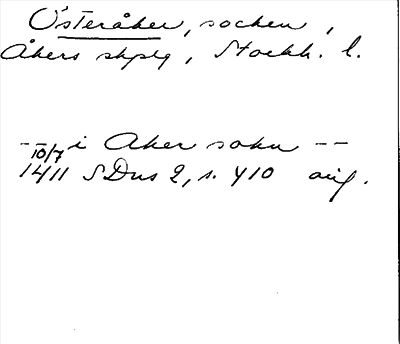 Österåker, socken,
Åkers skplg, Stockh. l.
-- i Aker sokn --
10/7
1411 SDns 2, s. 410 avig.